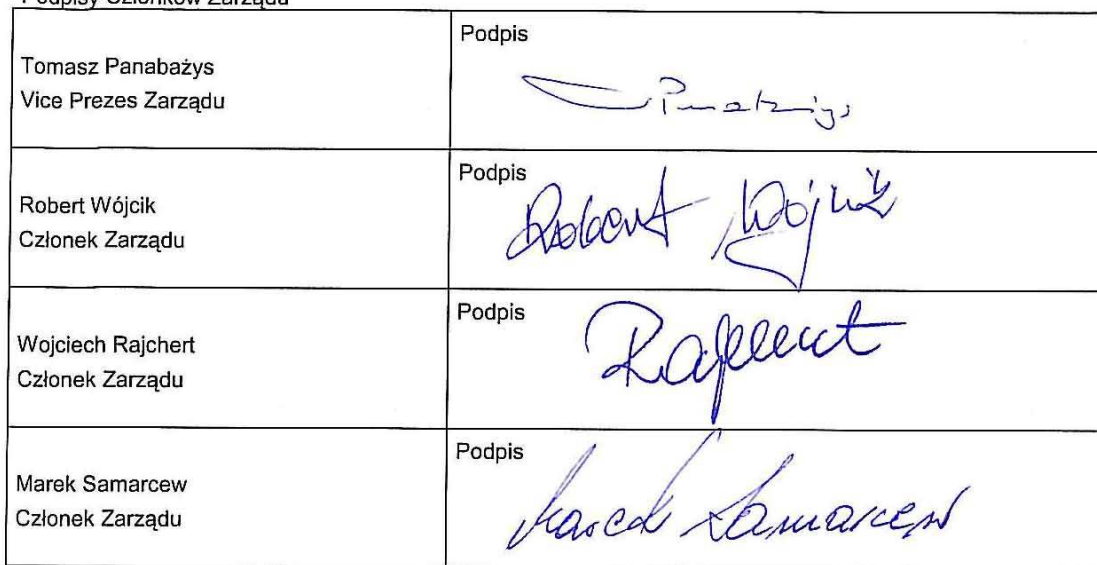 Podpisy Członków Zarządu
Tomasz Panabażys
Vice Prezes Zarządu
Podpis
Robert Wójcik
Członek Zarządu
Podpis
Robert Wójcik
Wojciech Rajchert
Członek Zarządu
Podpis
Rajchert
Marek Samarcew
Członek Zarządu
Podpis
Marek Samarcew